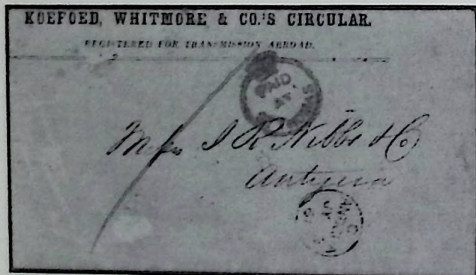 KOEFOED, WHITMORE & CO.'S CIRCULAR.
REGISTERED FOR TRANSMISSION ABROAD.
PAID
AT
Mess J R Nibbs & Co
Antigua